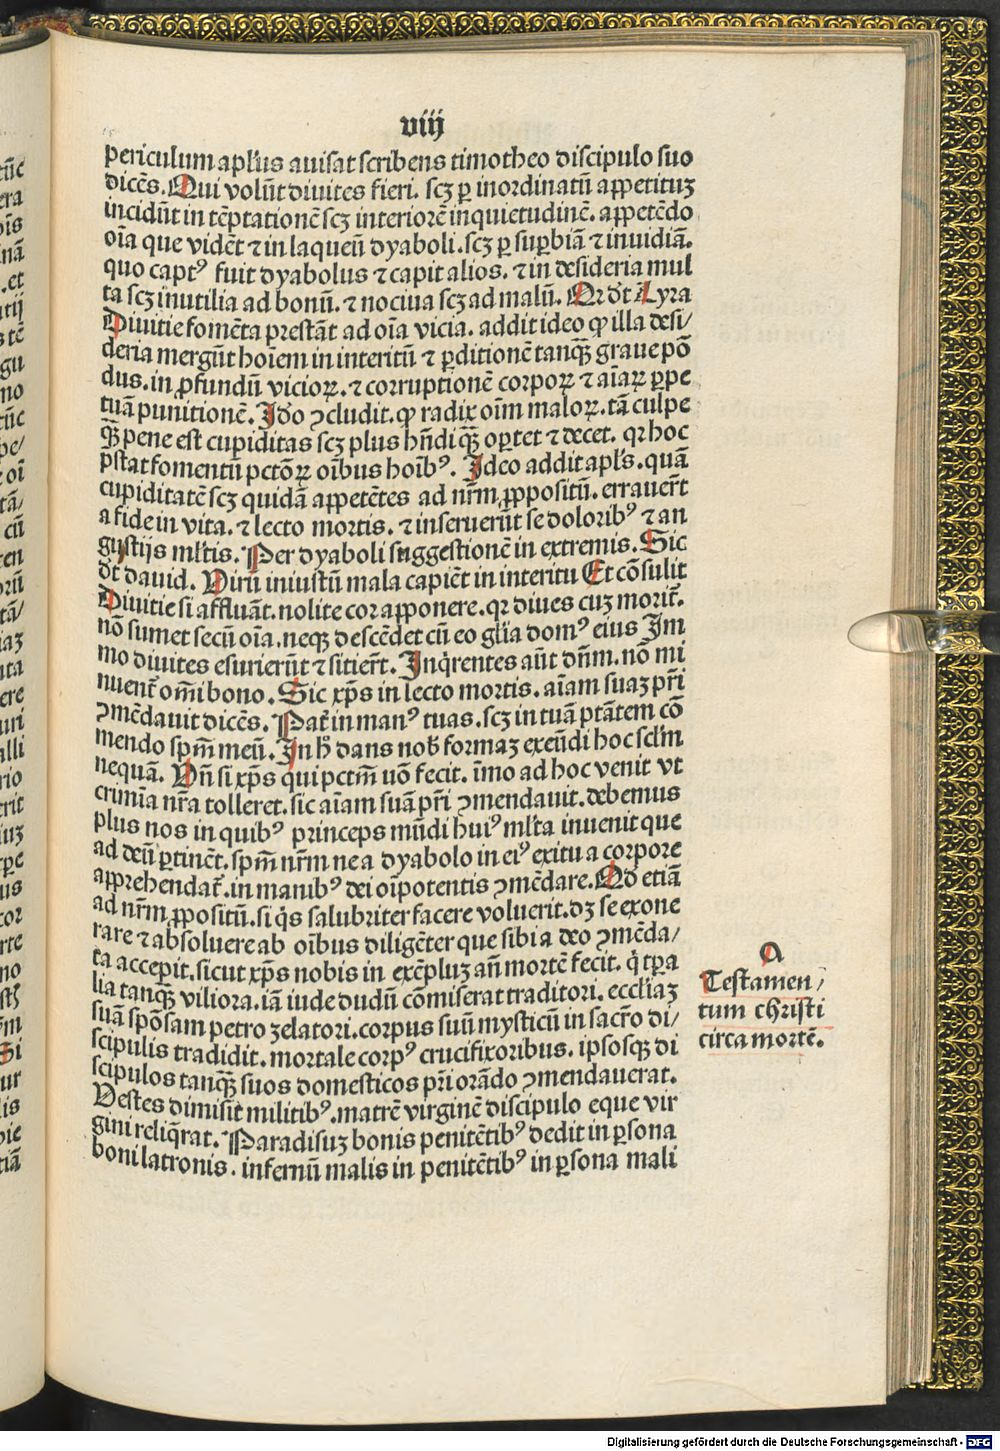 viij
periculum apl'us auisat scribens timotheo discipulo suo
dicēs. Qui volūt diuites fieri. scꝫ ꝑ inordinatū appetitūꝫ
incidūt in tēptationē scꝫ interiorē inquietudinē. appetēdo
oīa que vidēt ⁊ in laqueū dyaboli. scꝫ ꝑ suꝑbiā ⁊ inuidiā.
quo captꝰ fuit dyabolus ⁊ capit alios. ⁊ in desideria mul
ta scꝫ inutilia ad bonū. ⁊ nociua scꝫ ad malū. Qꝛ dt̄ Lyra
Diuitie fomēta prestāt ad oīa vicia. addit ideo ꝙ illa desi/
deria mergūt hoīem in interitū ⁊ ꝑditionē tanꝗꝫ graue pō
dus. in ꝓfundū vicioꝝ. ⁊ corruptionē corpoꝝ ⁊ aīaꝝ ꝑpe
tuā punitionē. Ido ꝯcludit. ꝙ radix oīm maloꝝ. tā culpe
ꝗꝫ pene est cupiditas scꝫ plus hn̄di ꝗꝫ oꝑtet ⁊ decet. qꝛ hoc
p̄stat fomentū pctōꝝ oībus hoībꝰ. Ideo addit apl's. quā
cupiditatē scꝫ quidā appetētes ad nr̄m ꝓpositū. errauer̄t
a fide in vita. ⁊ lecto mortis. ⁊ inseruerūt se doloribꝰ ⁊ an
gustijs ml'tis. Per dyaboli suggestionē in extremis. Sic
dt̄ dauid. Virū iniustū mala capiēt in interitu Et cōsulit
Diuitie si affluāt. nolite cor apponere. qꝛ diues cuꝫ morit̄.
nō sumet secū oīa. neqꝫ descēdet cū eo gl'ia domꝰ eius Im
mo diuites esurierūt ⁊ sitier̄t. Inq̇rentes aūt dn̄m. nō mi
nuent̄ om̄i bono. Sic xp̄s in lecto mortis. aīam suaꝫ pr̄i
ꝯmēdauit dicēs. Pat̄ in manꝰ tuas. scꝫ in tuā ptātem cō
mendo sp̄m meū. In h̄ dans nob̄ formaꝫ exeūdi hoc secl'm
nequā. Vn̄ si xp̄s qui pctm̄ nō fecit. īmo ad hoc venit vt
crimīa nr̄a tolleret. sic aīam suā pr̄i ꝯmendauit. debemus
plus nos in quibꝰ princeps mūdi huiꝰ ml'ta inuenit que
ad deū ꝑtinēt. sp̄m nr̄m ne a dyabolo in eiꝰ exitu a corpore
apprehendat̄. in manibꝰ dei oīpotentis ꝯmēdare. Qd etiā
ad nr̄m ꝓpositū. si q̇s salubriter facere voluerit. dꝫ se exone
rare ⁊ absoluere ab oībus diligēter que sibi a deo ꝯmēda/
ta acceperit. sicut xp̄s nobis in exēpluꝫ an̄ mortē fecit. q̇ tꝑa
lia tanꝗꝫ viliora. iā iude dudū cōmiserat traditori. eccl'iaꝫ
suā spōsam petro ꝫelatori. corpus suū mysticū in sacr̄o di/
scipulis tradidit. mortale corpꝰ crucifixoribus. ipsosqꝫ di
scipulos tanꝗꝫ suos domesticos pr̄i orādo ꝯmendauerat.
Vestes dimisit militibꝰ. matrē virginē discipulo eque vir
gini reliq̇rat. Paradisuꝫ bonis penitētibꝰ dedit in ꝑsona
boni latronis. infernū malis in penitētibꝰ in ꝑsona mali
A
Testamen/
tum christi
circa mortē.
Digitalisierung gefördert durch die Deutsche Forschungsgemeinschaft - DFG